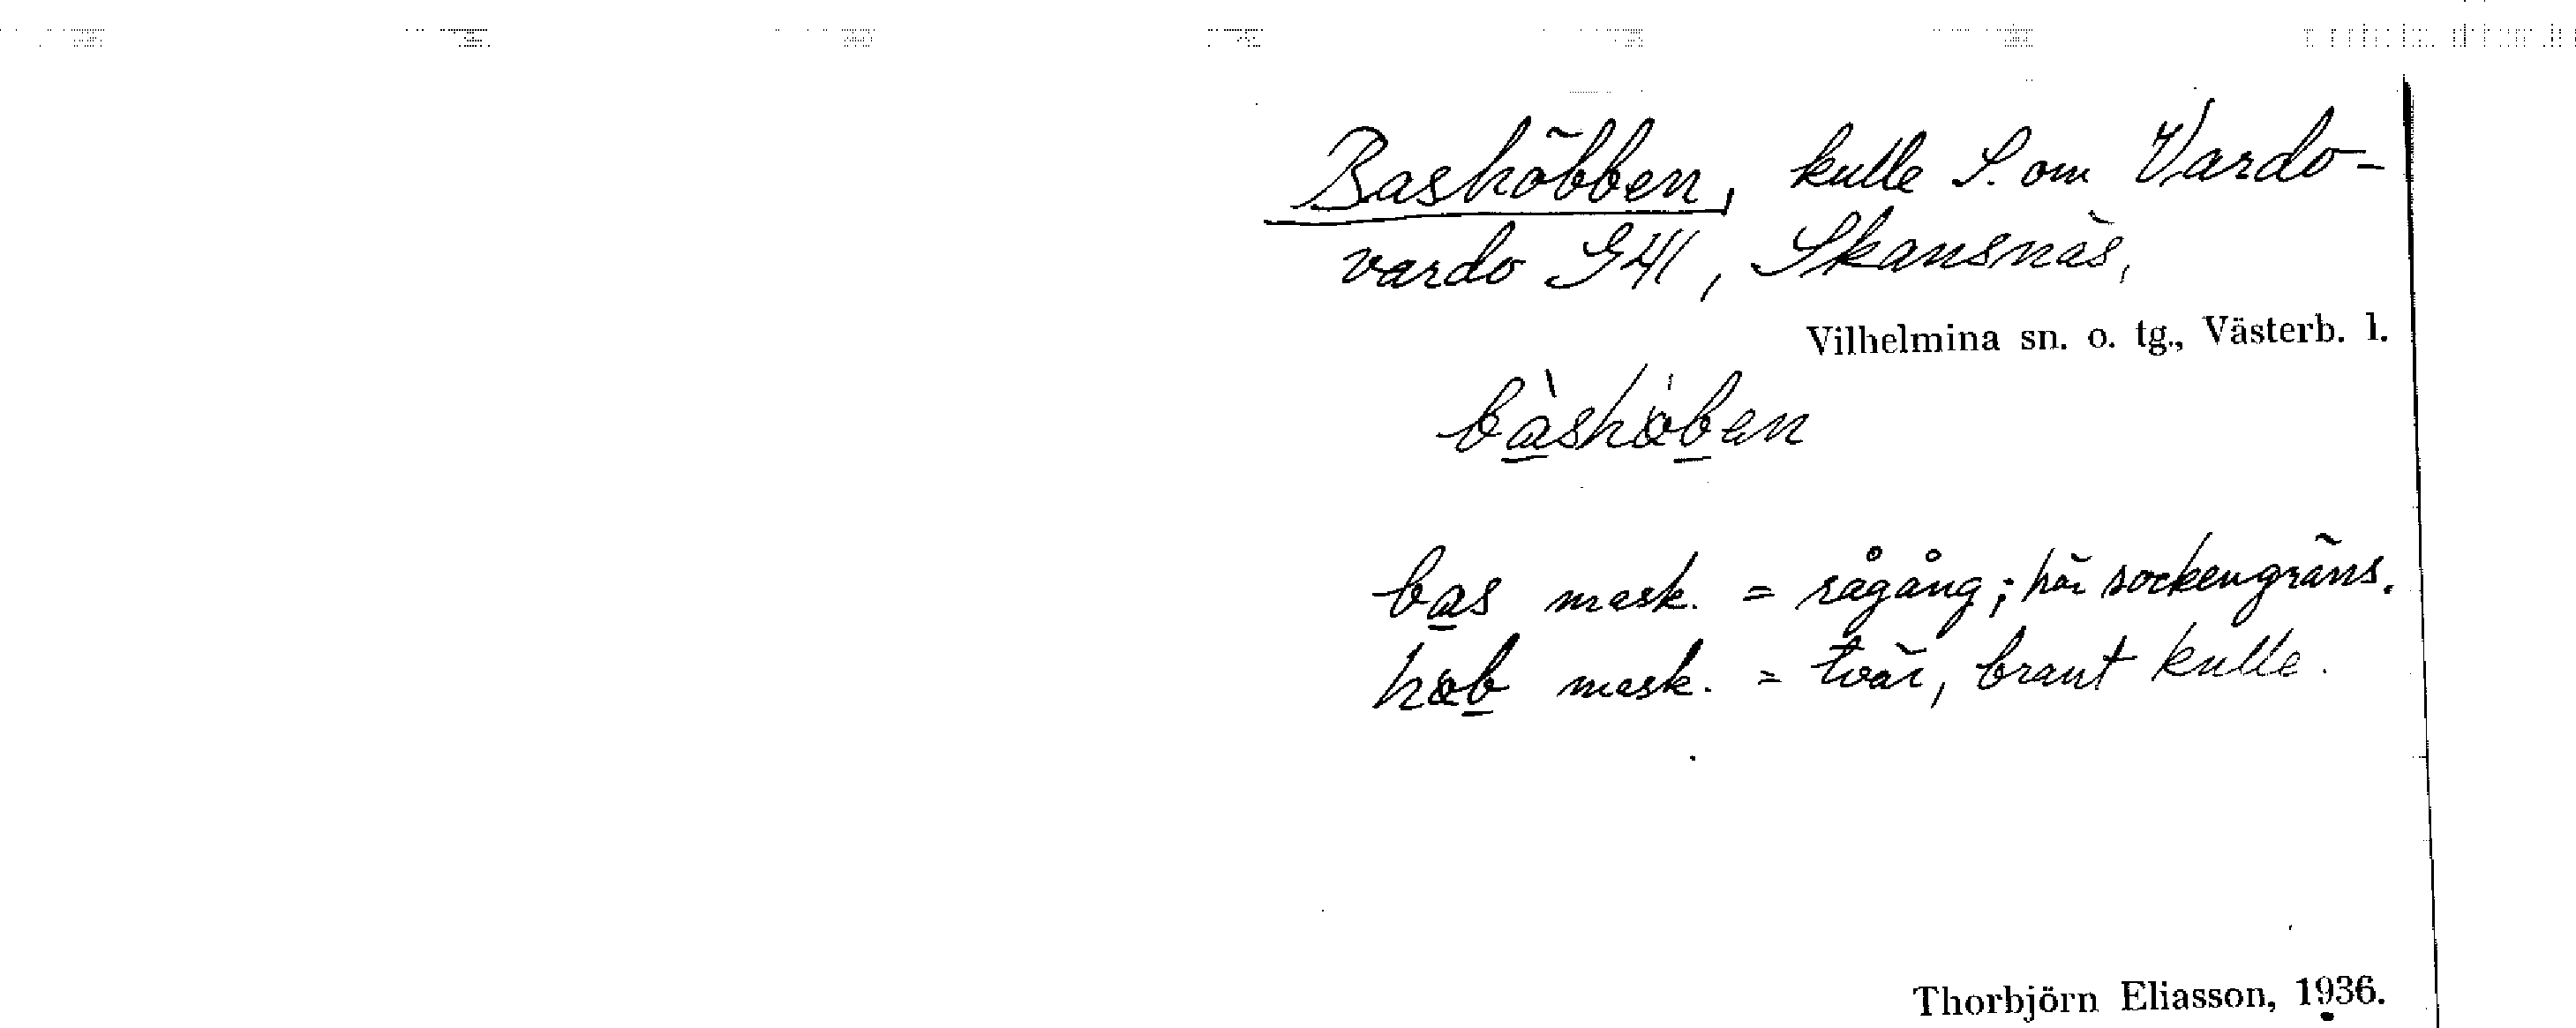 Bashöbben, kulle S. om Vardo-
vardo G41, Skansnäs,
Vilhelmina sn. o. tg., Västerb. l.
bas mask. = rågång; här sockengräns.
mask. = tvär, brant kulle.
Thorbjörn Eliasson, 1936.